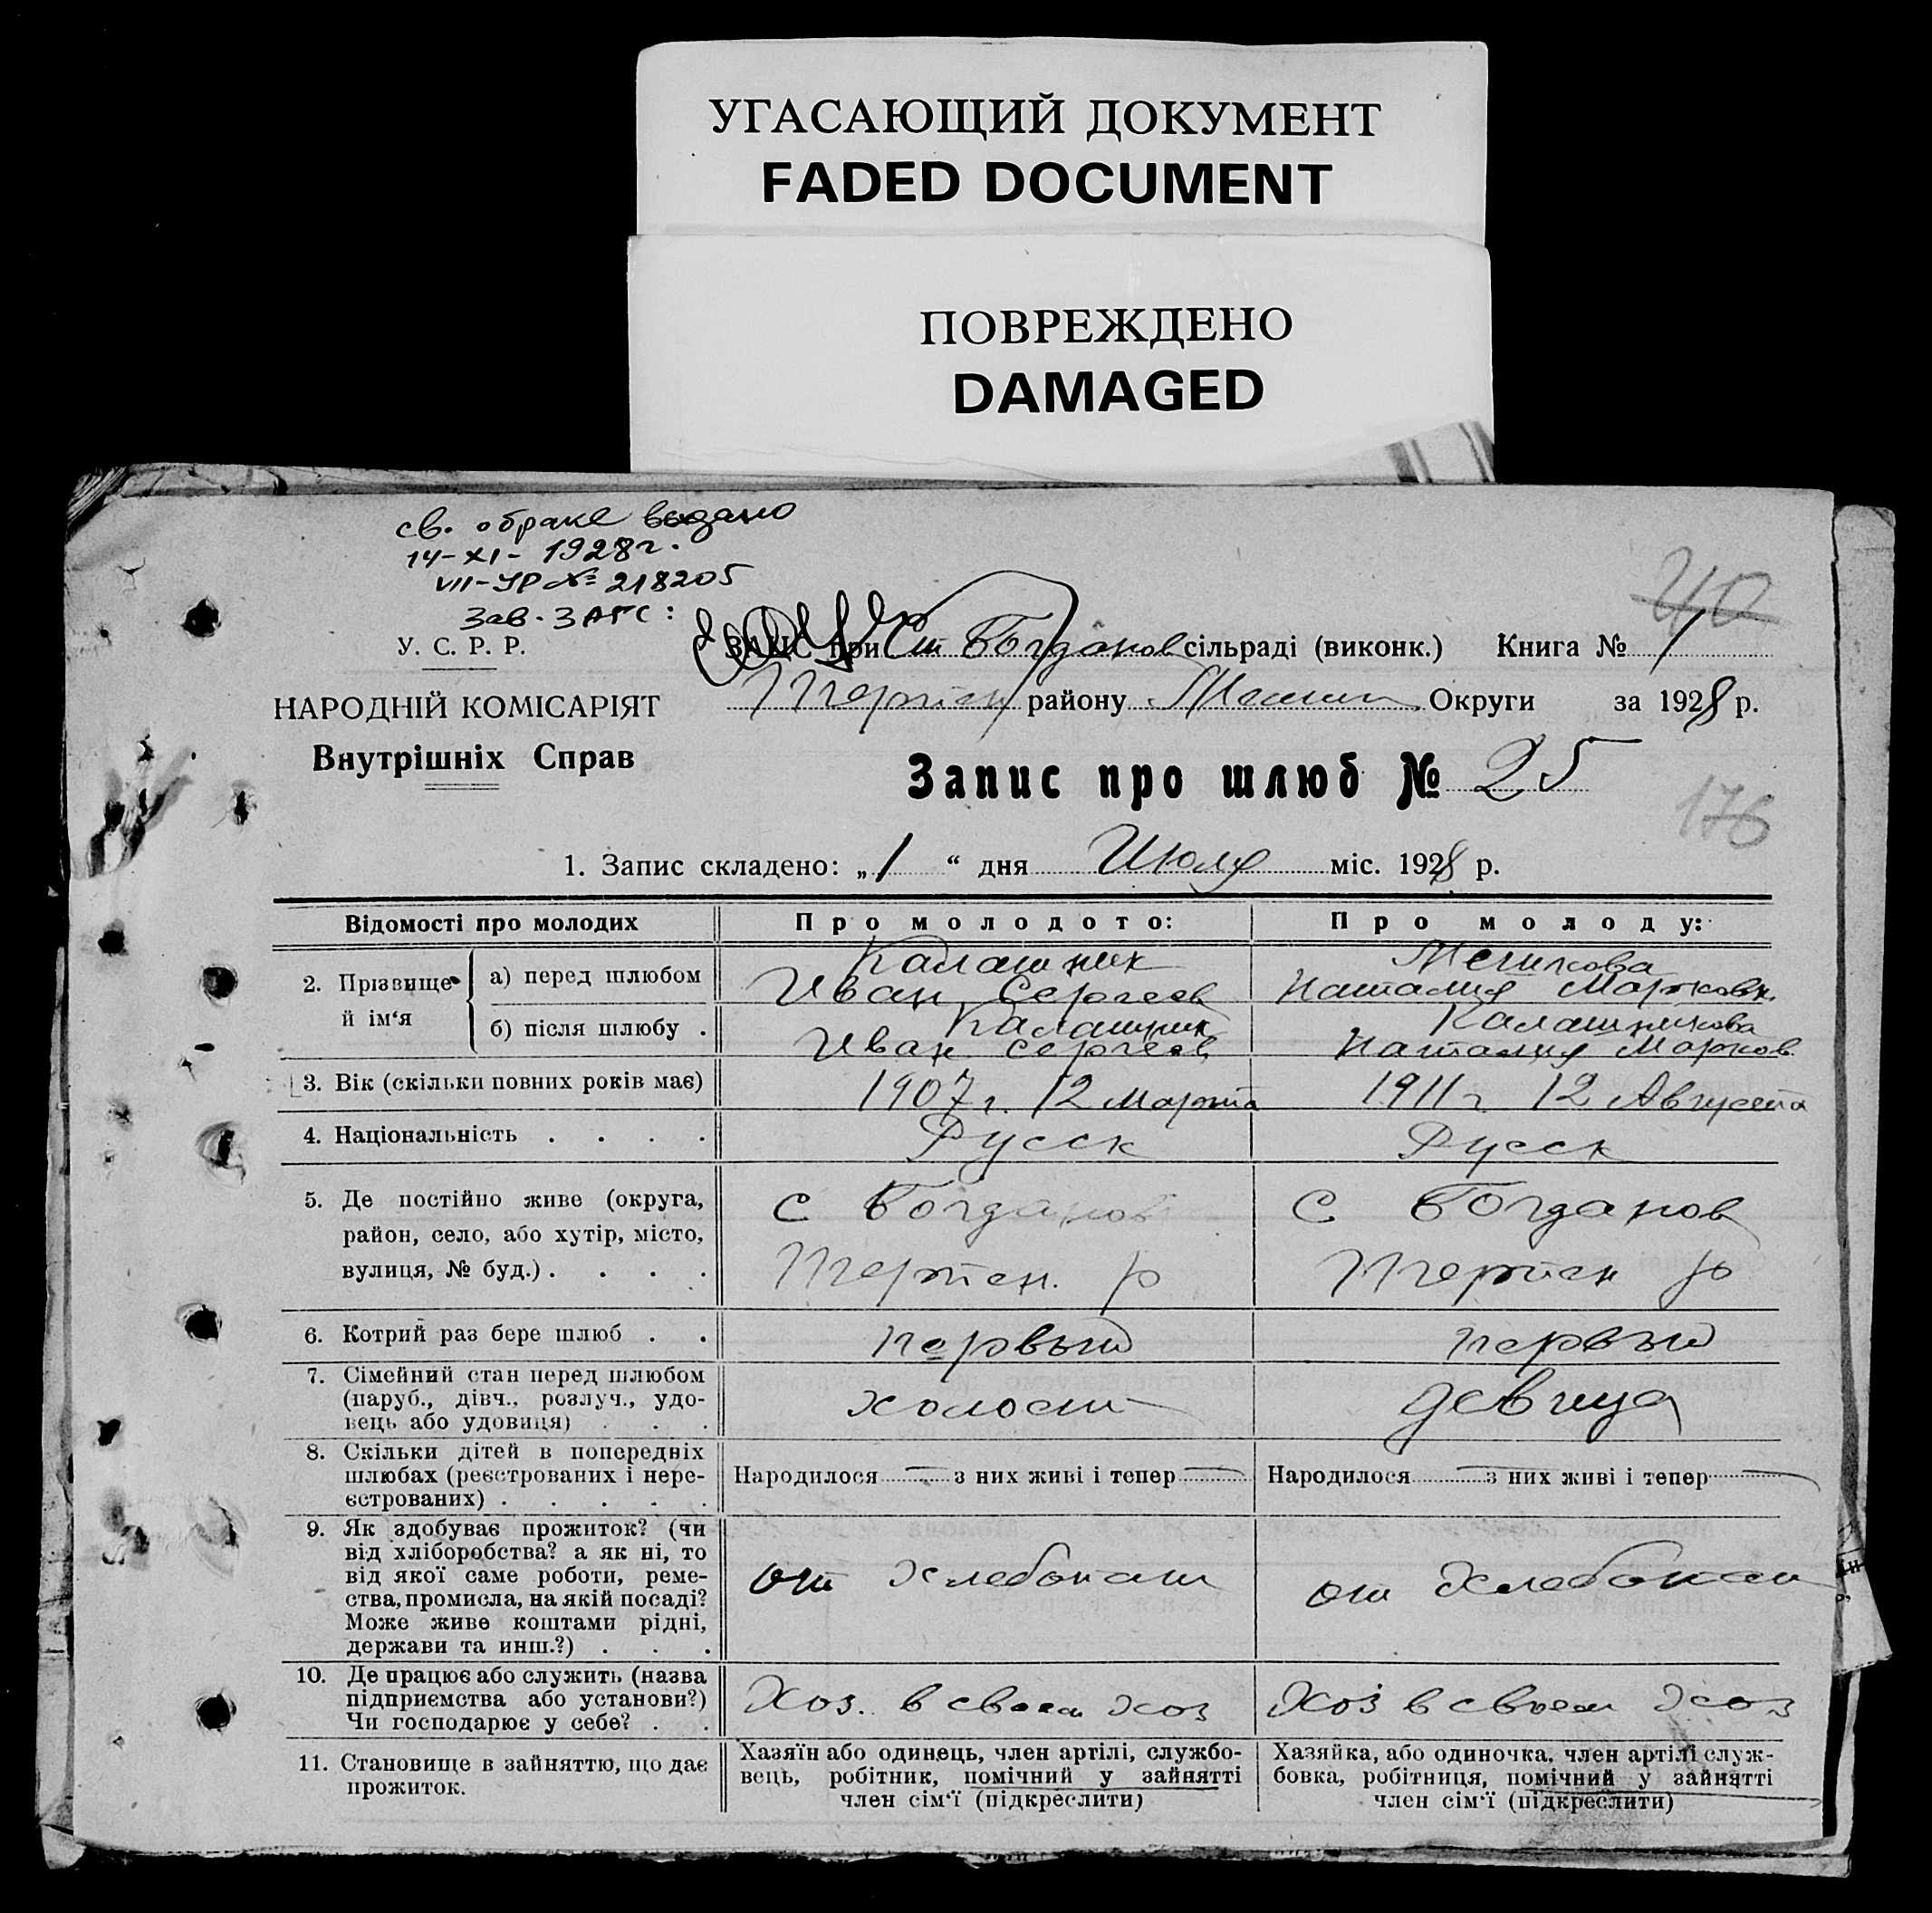 УГАСАЮЩИЙ ДОКУМЕНТ
FADED DOCUMENT
ПОВРЕЖДЕНО
DAMAGED
св. о браке выдано
14-XI- 1928 г.
VII-УР № 218205
Зав. ЗАГС:
У. С. Р. Р.
НАРОДНІЙ КОМІСАРІЯТ
Внутрішніх Справ
40
ЗАЦС при Ст Богданов сільраді (виконк.) Книга № 1
Терпен району Округи за 1928 р.
Запис про шлюб № 25
176
1. Запис складено: „1“ дня Июля міс. 1928 р.
Відомості про молодих
Про молодого:
Про молоду:
2. Прізвище й ім‘я
а) перед шлюбом
Калашник
Иван Сергеев
Наталия Марковн.
б) після шлюбу .
Калашник
Иван Сергеев
Калашникова
Наталия Марков.
3. Вік (скільки повних років має)
1907 г. 12 марта
1911 г 12 Августа
4. Національність . . . .
Русск
Русск
5. Де постійно живе (округа,
район, село, або хутір, місто,
вулиця, № буд.) . . . .
с Богданов
Терпен. р
с Богданов
Терпен р
6. Котрий раз бере шлюб . .
первый
первый
7. Сімейний стан перед шлюбом
(паруб., дівч., розлуч., удо-
вець або удовиця) . . .
холост
девица
8. Скільки дітей в попередніх
шлюбах (реєстрованих і нере-
єстрованих) . . . . .
Народилося — з них живі і тепер —
Народилося — з них живі і тепер —
9. Як здобуває прожиток? (чи
від хліборобства? а як ні, то
від якої саме роботи, реме-
ства, промисла, на якій посаді?
Може живе коштами рідні,
держави та инш.?) . . .
от хлебопаш
от хлебопаш
10. Де працює або служить (назва
підприємства або установи?)
Чи господарює у себе? . .
Хоз. в своем хоз
Хоз в своем хоз
11. Становище в зайняттю, що дає
прожиток.
Хазяїн або одинець, член артілі, службо-
вець, робітник, помічний у зайнятті
член сім‘ї (підкреслити)
Хазяйка, або одиночка, член артілі служ-
бовка, робітниця, помічний у зайнятті
член сім‘ї (підкреслити)